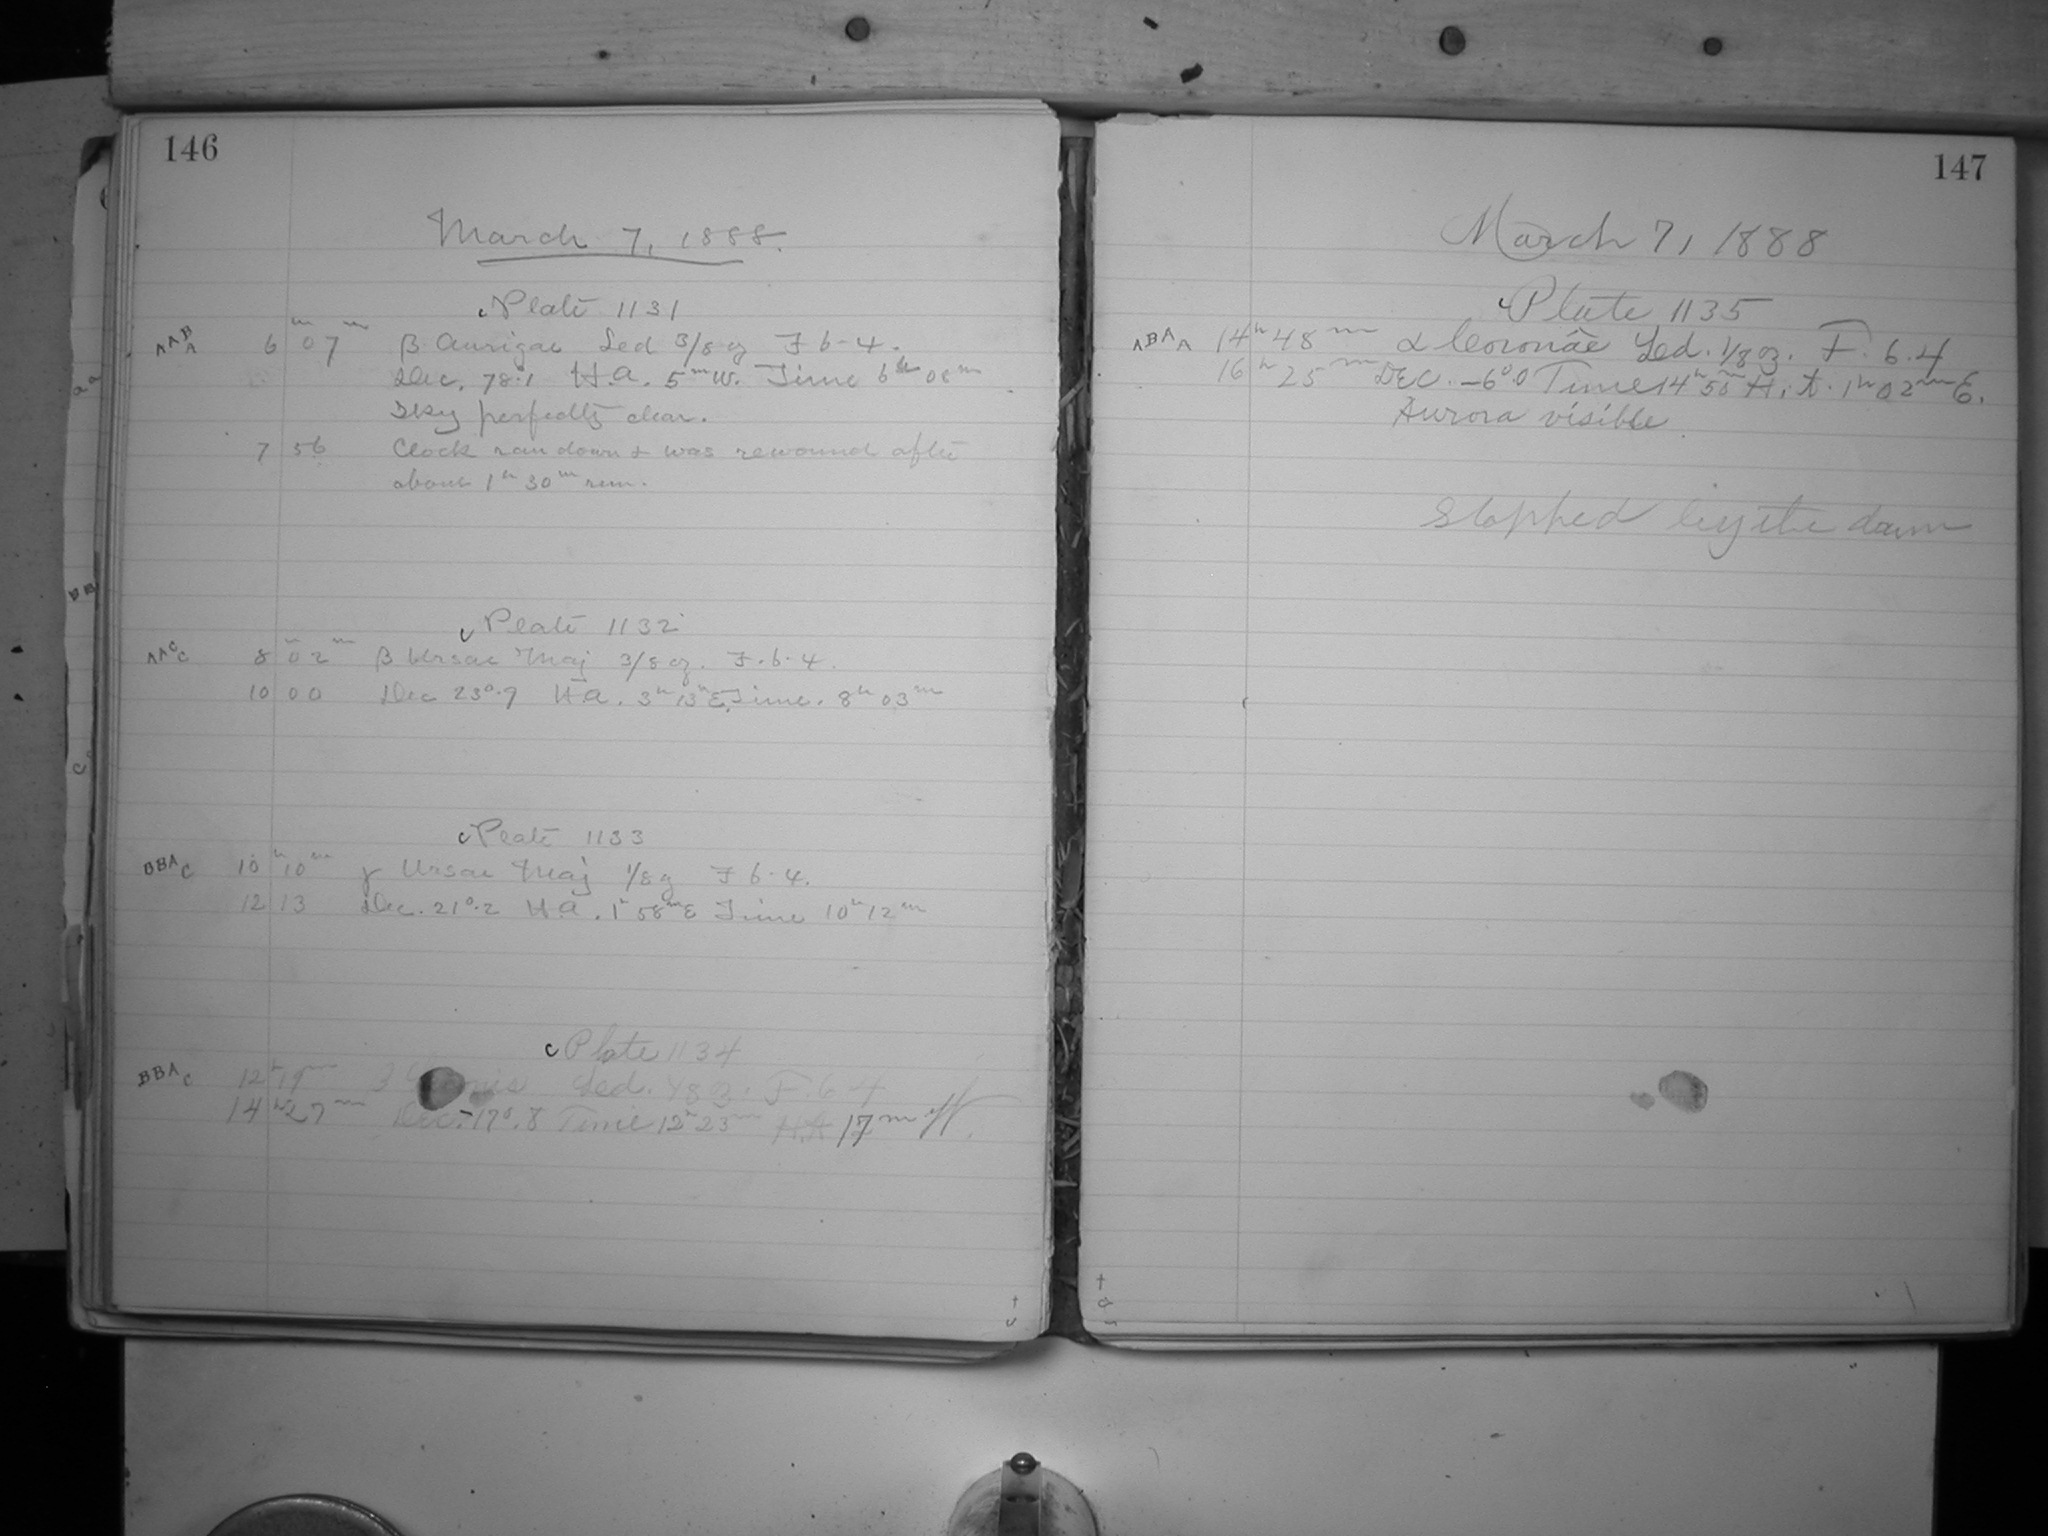 146
March 7, 1888.
Plate 1131
AABA 6 07 m β Aurigae Sed 3/8 oz F 6.4.
Dec. 78.1 H.A. 5m W. Time 6h 08m
Sky perfectly clear.
7 56 Clock ran down & was rewound after
about 1h 30m run.
Plate 1132
AACC 8 02 m β Ursae Maj 3/8 oz. F. 6.4.
10 00 Dec 23°.9 H.A. 3h 13m E. Time. 8h 03m
Plate 1133
BBAC 10h 10m γ Ursae Maj 1/8 oz F 6.4.
12 13 Dec. 21°.2 H.A. 1h 58m E Time 10h 12m
Plate 1134
BBAC 12h 19m Sed. 1/8 oz. F. 6.4
14h 27m Dec. -17°.8 Time 12h 23m H.A. 17m W.
147
March 7, 1888
Plate 1135
ABAA 14h 48m α Coronae Sed. 1/8 oz. F. 6.4
16h 25m Dec. -6°.0 Time 14h 50m H.A. 1h 02m E.
Aurora visible
Stopped by the dawn